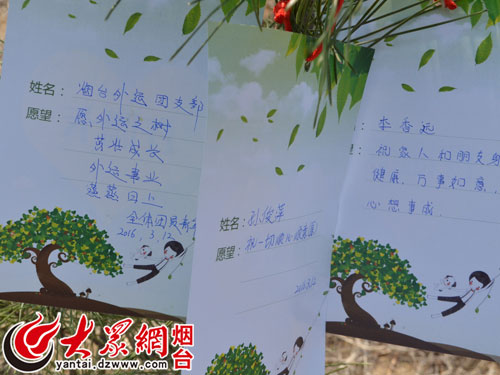 姓名：烟台外运团支部
愿望：愿外运之树
茁壮成长
外运事业
蒸蒸日上
全体团员青
2016.3.12
姓名：孙俊萍
愿望：祝一切顺心
2016.3.12
：李香远
：祝家人和朋友身
健康、万事如意、
心想事成.
大众網 烟台
yantai.dzwww.com